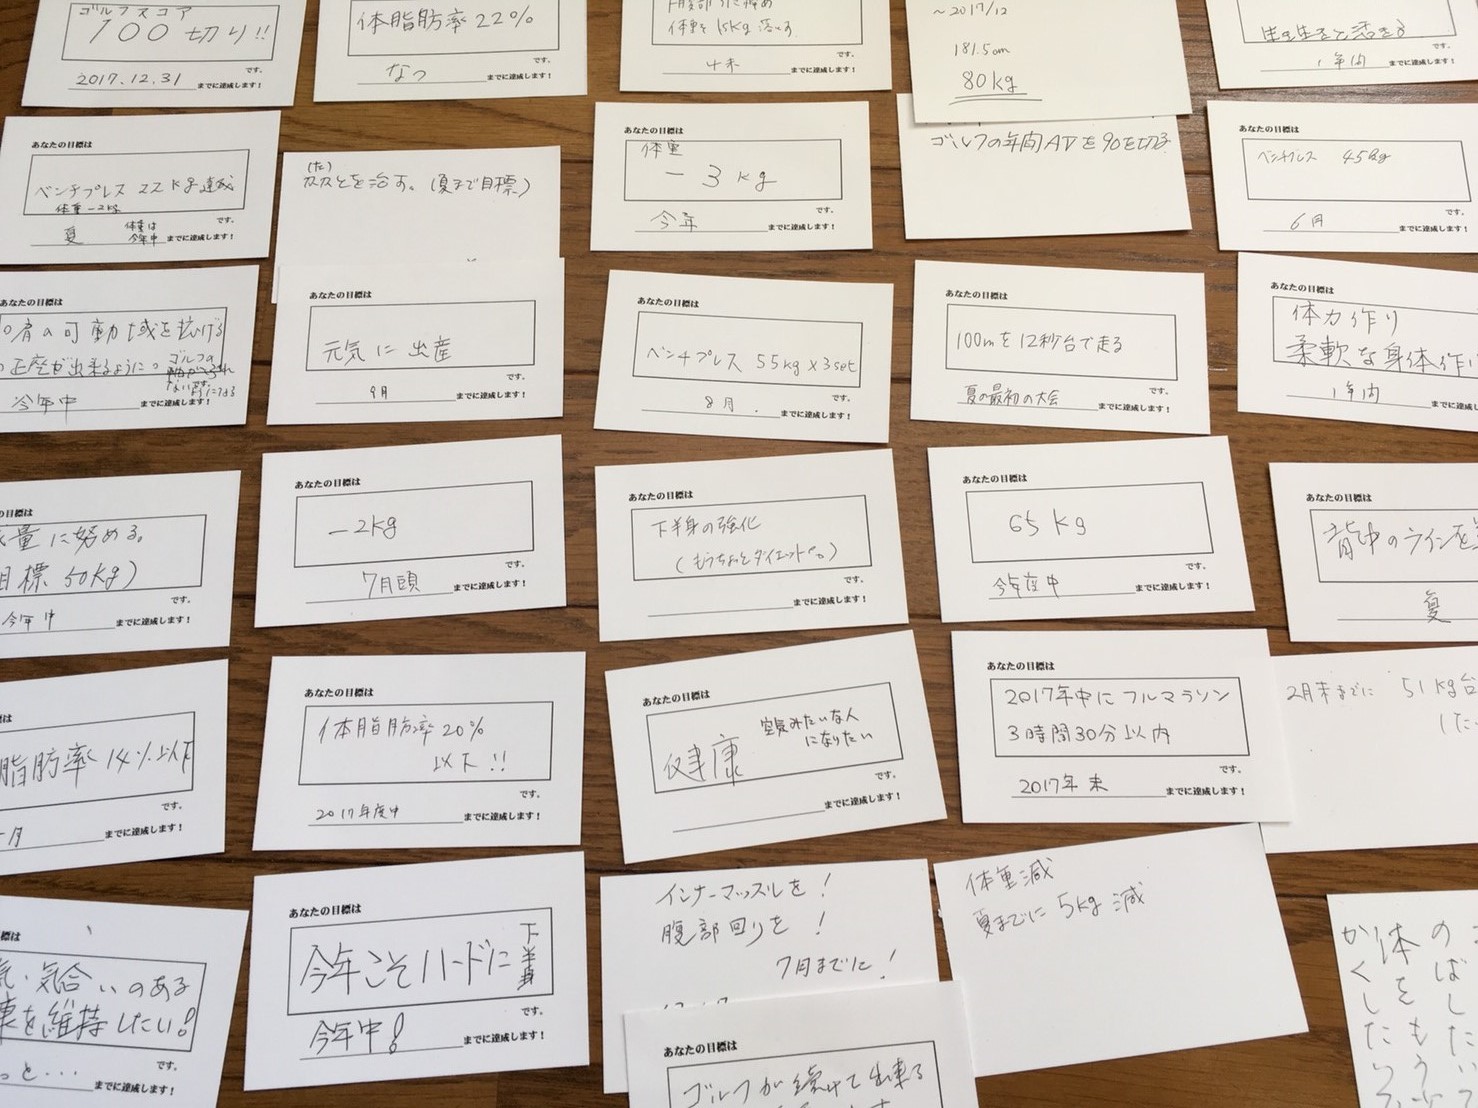 ゴルフスコア
100切り!!
です。
2017.12.31
までに達成します!
体脂肪率22%
です。
なつ
までに達成します!
体重を15kg落とす
です。
までに達成します!
~2017/12
181.5cm
80kg
です。
1年内
までに達成します!
あなたの目標は
ベンチプレス 22kg達成
体重-2kg
です。
夏
体重は
今年中
までに達成します!
を治す。(夏まで目標)
あなたの目標は
体重
-3kg
です。
今年
までに達成します!
ゴルフの年間AVを90を切る
あなたの目標は
ベンチプレス 45kg
です。
6月
までに達成します!
あなたの目標は
肩の可動域を拡げる
正座が出来るように。
ゴルフの
です。
今年中
までに達成します!
あなたの目標は
元気に出産
です。
9月
までに達成します!
あなたの目標は
ベンチプレス 55kg×3set
です。
8月.
までに達成します!
あなたの目標は
100mを12秒台で走る
です。
夏の最初の大会
までに達成します!
あなたの目標は
体力作り
柔軟な身体作り
です。
1年内
までに達成し
の目標は
量に努める。
目標50kg)
です。
今年中
までに達成します!
あなたの目標は
-2kg
です。
7月頭
までに達成します!
あなたの目標は
下半身の強化
(もうちょっとダイエットも。)
です。
までに達成します!
あなたの目標は
65kg
です。
今年度中
までに達成します!
あなたの目標は
背中のラインを
です。
夏
までに達成し
標は
脂肪率14%以下
です。
月
までに達成します!
あなたの目標は
体脂肪率20%
以下!!
です。
2017年度中
までに達成します!
あなたの目標は
健康
みたいな人
になりたい
です。
までに達成します!
あなたの目標は
2017年中にフルマラソン
3時間30分以内
です。
2017年末
までに達成します!
2月末までに 51kg台
標は
気・気合いのある
康を維持したい!
です。
っと・・・
までに達成します!
あなたの目標は
今年こそハードに
下半身
です。
今年中!
までに達成します!
インナーマッスルを!
腹部回りを!
7月までに!
体重減
夏までに5kg減
あなたの目標は
ゴルフが続けて出来る
のばしたい
体をもう
かくしたい